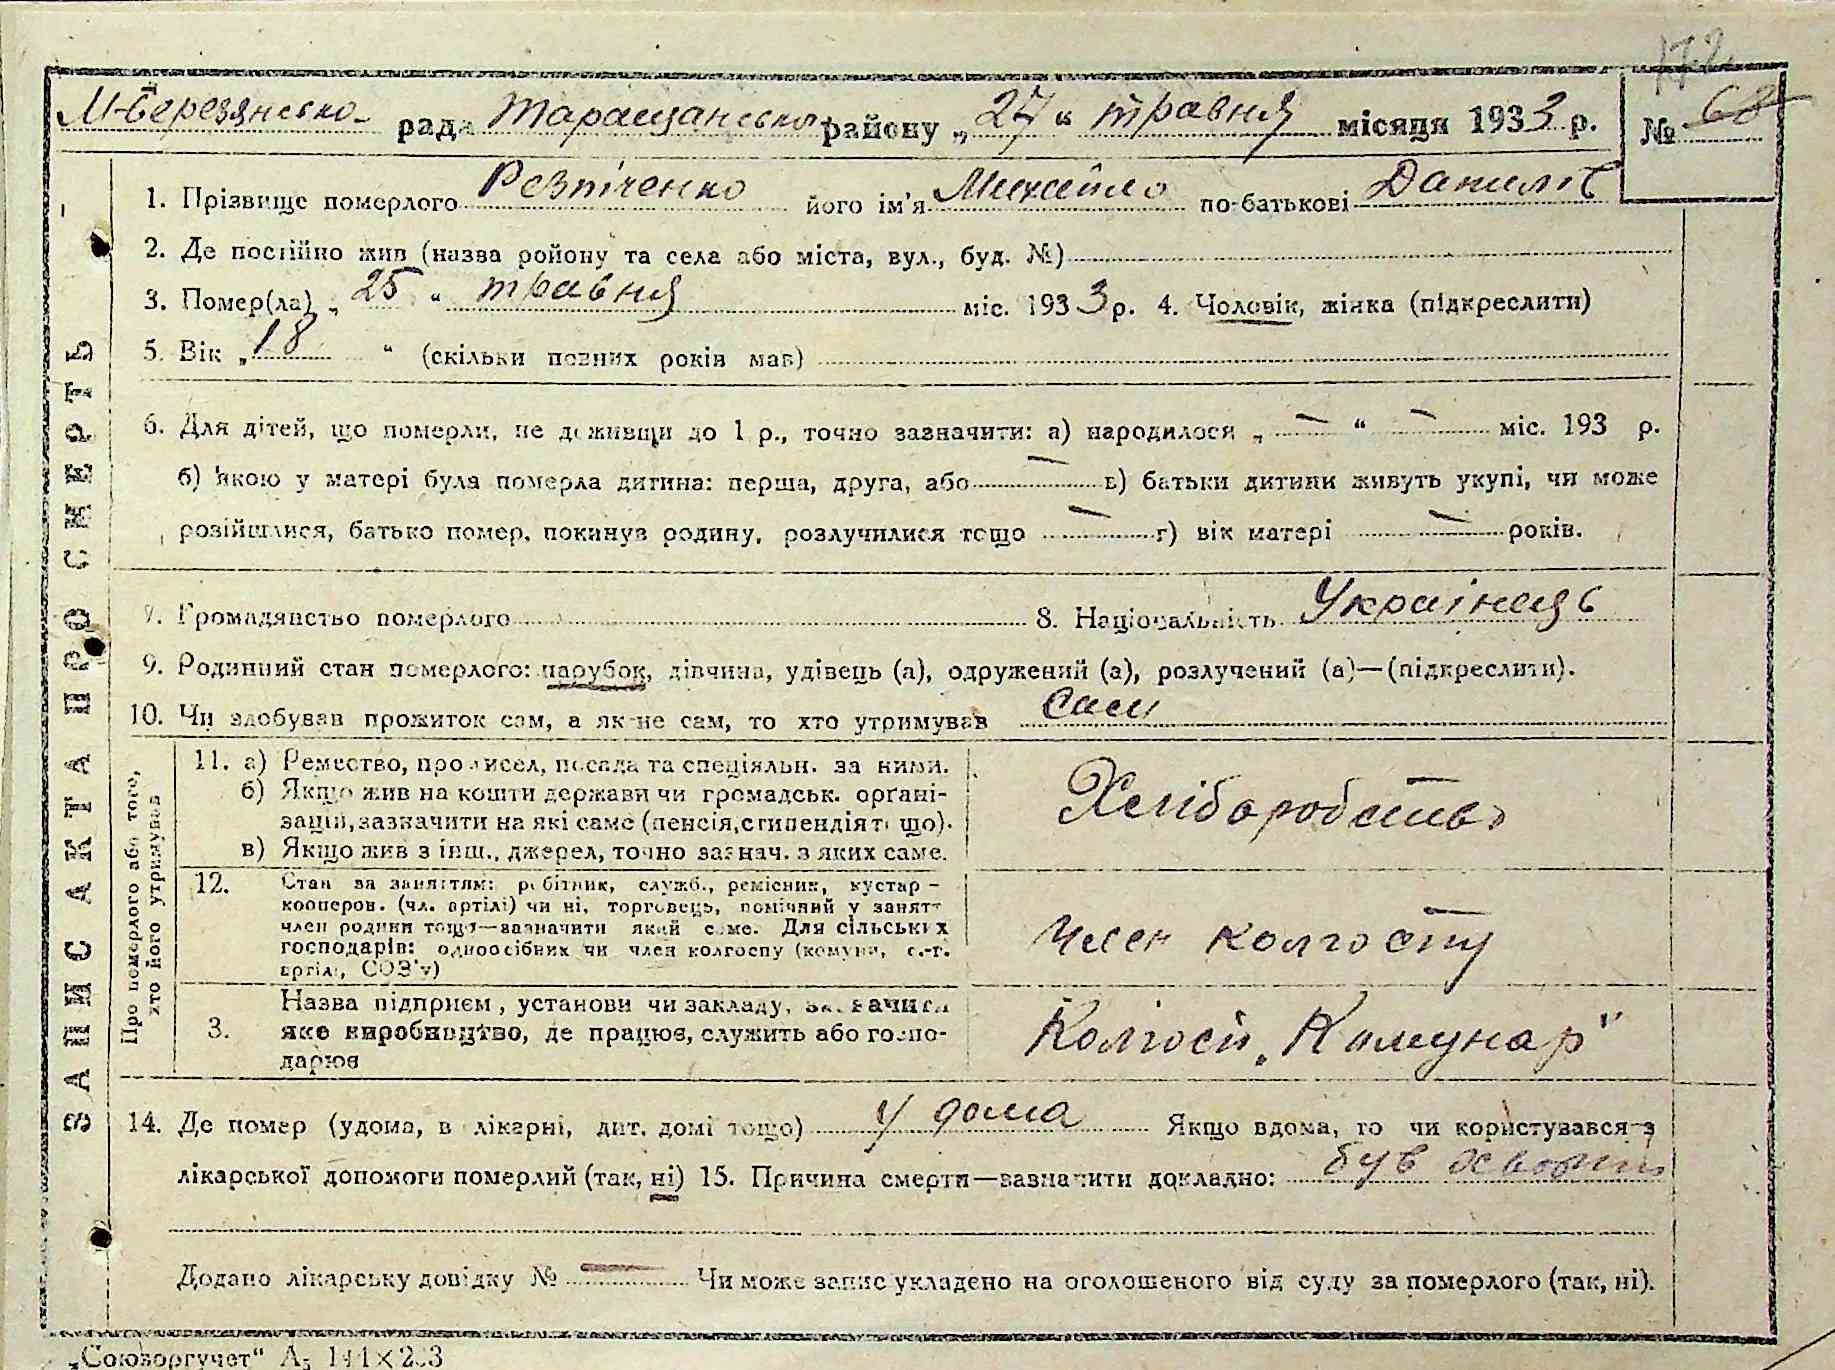 172
М-Березянсько- рада Таращансько району „27“ травня місяця 1933 р. № 68
1. Прізвище померлого Резніченко його ім'я Михайло по-батькові Данил
2. Де постійно жив (назва ройону та села або міста, вул., буд. №)
3. Помер(ла) „25“ травня міс. 1933 р. 4. Чоловік, жінка (підкреслити)
5. Вік „18“ (скільки повних років мав)
6. Для дітей, що померли, не доживщи до 1 р., точно зазначити: а) народилося „ — “ — міс. 193 р.
б) якою у матері була померла дитина: перша, друга, або — в) батьки дитини живуть укупі, чи може
розійшлися, батько помер, покинув родину, розлучилися тощо — г) вік матері — років.
7. Громадянство померлого 8. Національність Українець
9. Родинний стан померлого: парубок, дівчина, удівець (а), одружений (а), розлучений (а)—(підкреслити).
10. Чи здобував прожиток сам, а як не сам, то хто утримував сам
ЗАПИС АКТА ПРО СМЕРТЬ
Про померлого або того, хто його утримував
11. а) Ремество, промисел, посада та спеціяльн. за ними.
б) Якщо жив на кошти держави чи громадськ. органі-
зацій, зазначити на які саме (пенсія, стипендія тощо).
в) Якщо жив з інш., джерел, точно зазнач. з яких саме.
Хліборобство
12. Стан за заняттям: робітник, служб., ремісник, кустар-
кооперов. (чл. артілі) чи ні, торговець, помічний у занятт
член родини тощо—зазначити який саме. Для сільських
господарів: одноосібник чи член колгоспу (комуни, с.-г.
артілі, СОЗ'у)
Член колгоспу
3. Назва підприєм, установи чи закладу, зазначити
яке виробництво, де працює, служить або госпо-
дарює
Колгосп „Комунар"
14. Де помер (удома, в лікарні, дит. домі тощо) у дома Якщо вдома, то чи користувався з
лікарської допомоги померлий (так, ні) 15. Причина смерти—зазначити докладно: був
Додано лікарську довідку № — Чи може запис укладено на оголошеного від суду за померлого (так, ні).
„Союзоргучет“ А5